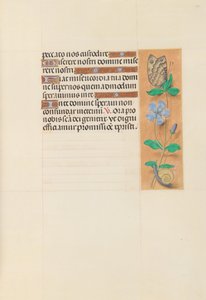 peccato nos custodire
serere nostri domine mise
rere nostri
Fiat misericordia tua domi
ne super nos quemadmodum
speravimus in te
In te domine speravi non
confundar in eternum V. Ora pro
nobis sancta dei genitrix Ut digni
efficiamur promissionibus xpristi